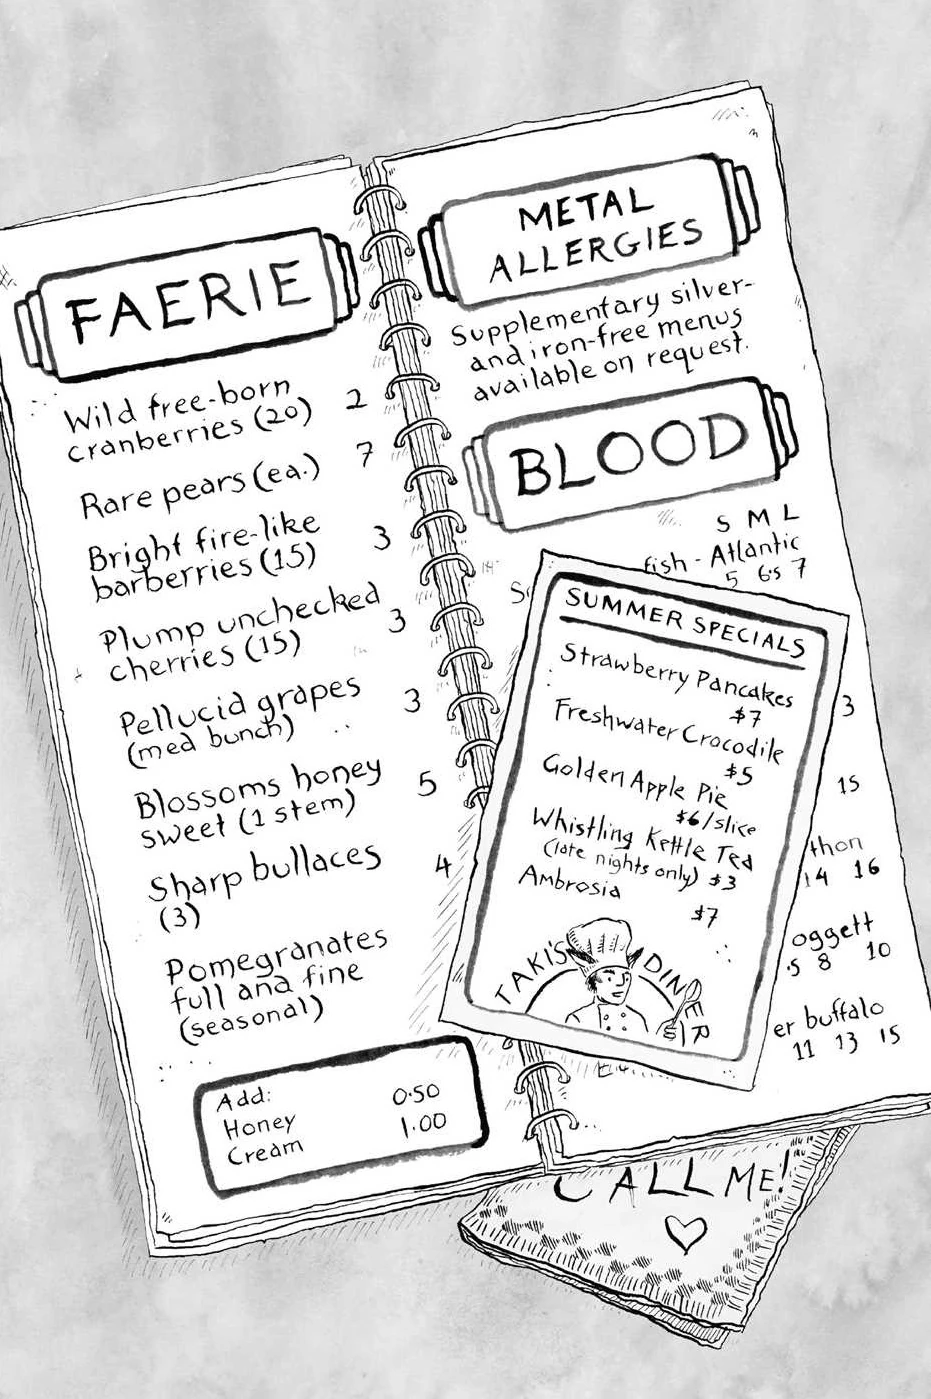 FAERIE
Wild free-born
cranberries (20) 2
Rare pears (ea.) 7
Bright fire-like
barberries (15) 3
Plump unchecked
cherries (15) 3
Pellucid grapes
(med bunch) 3
Blossoms honey
sweet (1 stem) 5
Sharp bullaces
(3) 4
Pomegranates
full and fine
(seasonal)
Add:
Honey 0.50
Cream 1.00
METAL
ALLERGIES
Supplementary silver-
and iron-free menus
available on request.
BLOOD
S M L
fish - Atlantic
5 6.5 7
3
15
thon
14 16
oggett
.5 8 10
er buffalo
11 13 15
SUMMER SPECIALS
Strawberry Pancakes
$7
Freshwater Crocodile
$5
Golden Apple Pie
$6/slice
Whistling Kettle Tea
(late nights only) $3
Ambrosia
$7
TAKI'S DINER
CALL ME!